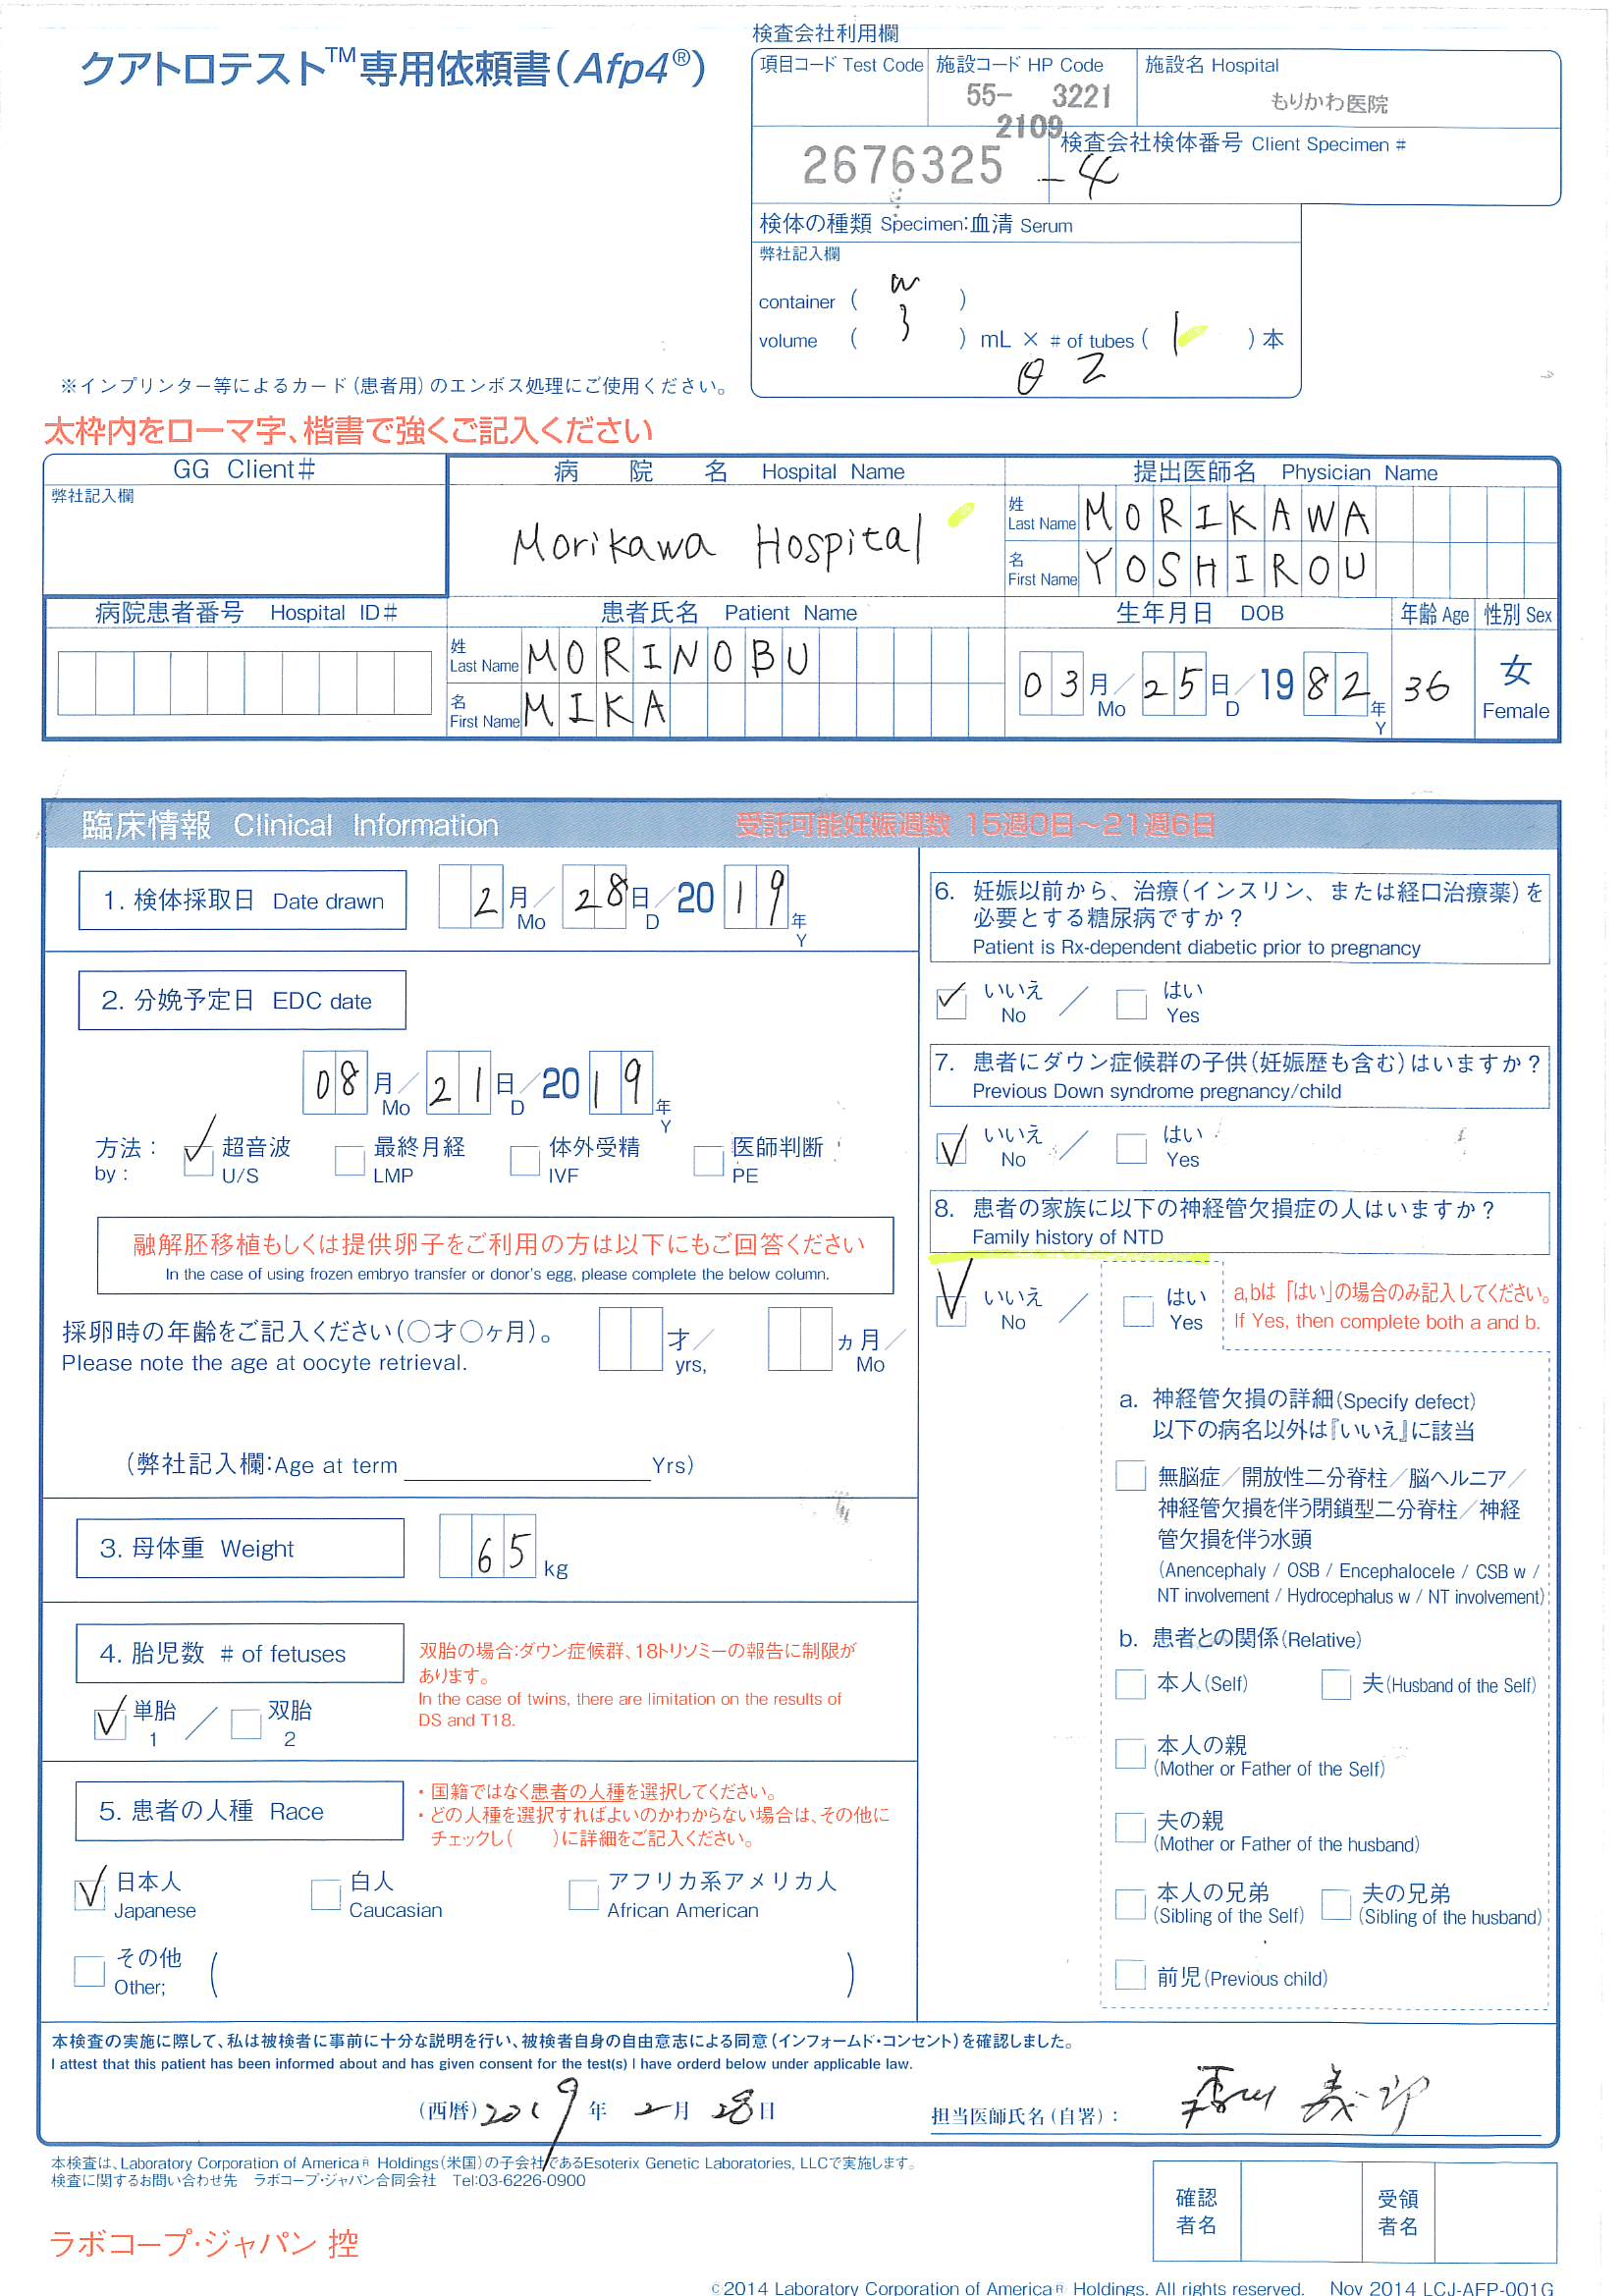 検査会社利用欄
クアトロテスト™専用依頼書(Afp4®)
項目コード Test Code 施設コード HP Code 施設名 Hospital
55- 3221
もりかわ医院
2109
検査会社検体番号 Client Specimen #
2676325 -4
検体の種類 Specimen:血清 Serum
弊社記入欄
container ( )
volume ( 3 ) mL × # of tubes ( 1 ) 本
※インプリンター等によるカード(患者用)のエンボス処理にご使用ください。
太枠内をローマ字、楷書で強くご記入ください
GG Client# 病院名 Hospital Name 提出医師名 Physician Name
弊社記入欄
Morikawa Hospital
姓 Last Name MORIKAWA
名 First Name YOSHIROU
病院患者番号 Hospital ID# 患者氏名 Patient Name 生年月日 DOB 年齢 Age 性別 Sex
姓 Last Name MORINOBU
名 First Name MIKA
03月/25日/1982年 36 女
Mo D Y Female
臨床情報 Clinical Information 受託可能妊娠週数 15週0日~21週6日
1. 検体採取日 Date drawn 2月/28日/2019年
Mo D Y
2. 分娩予定日 EDC date
08月/21日/2019年
Mo D Y
方法: 超音波 最終月経 体外受精 医師判断
by: U/S LMP IVF PE
融解胚移植もしくは提供卵子をご利用の方は以下にもご回答ください
In the case of using frozen embryo transfer or donor's egg, please complete the below column.
採卵時の年齢をご記入ください(○才○ヶ月)。 才/ カ月/
Please note the age at oocyte retrieval. yrs, Mo
(弊社記入欄:Age at term Yrs)
3. 母体重 Weight 65 kg
4. 胎児数 # of fetuses
双胎の場合:ダウン症候群、18トリソミーの報告に制限が
あります。
In the case of twins, there are limitation on the results of
DS and T18.
単胎 / 双胎
1 2
5. 患者の人種 Race
・国籍ではなく患者の人種を選択してください。
・どの人種を選択すればよいのかわからない場合は、その他に
チェックし( )に詳細をご記入ください。
日本人 白人 アフリカ系アメリカ人
Japanese Caucasian African American
その他
Other; ( )
6. 妊娠以前から、治療(インスリン、または経口治療薬)を
必要とする糖尿病ですか?
Patient is Rx-dependent diabetic prior to pregnancy
いいえ / はい
No Yes
7. 患者にダウン症候群の子供(妊娠歴も含む)はいますか?
Previous Down syndrome pregnancy/child
いいえ / はい
No Yes
8. 患者の家族に以下の神経管欠損症の人はいますか?
Family history of NTD
いいえ / はい
No Yes
a,bは「はい」の場合のみ記入してください。
If Yes, then complete both a and b.
a. 神経管欠損の詳細(Specify defect)
以下の病名以外は『いいえ』に該当
無脳症/開放性二分脊柱/脳ヘルニア/
神経管欠損を伴う閉鎖型二分脊柱/神経
管欠損を伴う水頭
(Anencephaly / OSB / Encephalocele / CSB w /
NT involvement / Hydrocephalus w / NT involvement)
b. 患者との関係(Relative)
本人(Self) 夫(Husband of the Self)
本人の親
(Mother or Father of the Self)
夫の親
(Mother or Father of the husband)
本人の兄弟 夫の兄弟
(Sibling of the Self) (Sibling of the husband)
前児(Previous child)
本検査の実施に際して、私は被検者に事前に十分な説明を行い、被検者自身の自由意志による同意(インフォームド・コンセント)を確認しました。
I attest that this patient has been informed about and has given consent for the test(s) I have orderd below under applicable law.
(西暦)2019年 2月 28日 担当医師氏名(自署):
本検査は、Laboratory Corporation of America® Holdings(米国)の子会社であるEsoterix Genetic Laboratories, LLCで実施します。
検査に関するお問い合わせ先 ラボコープ・ジャパン合同会社 Tel:03-6226-0900
確認者名 受領者名
ラボコープ・ジャパン 控
©2014 Laboratory Corporation of America® Holdings. All rights reserved. Nov 2014 LCJ-AFP-001G